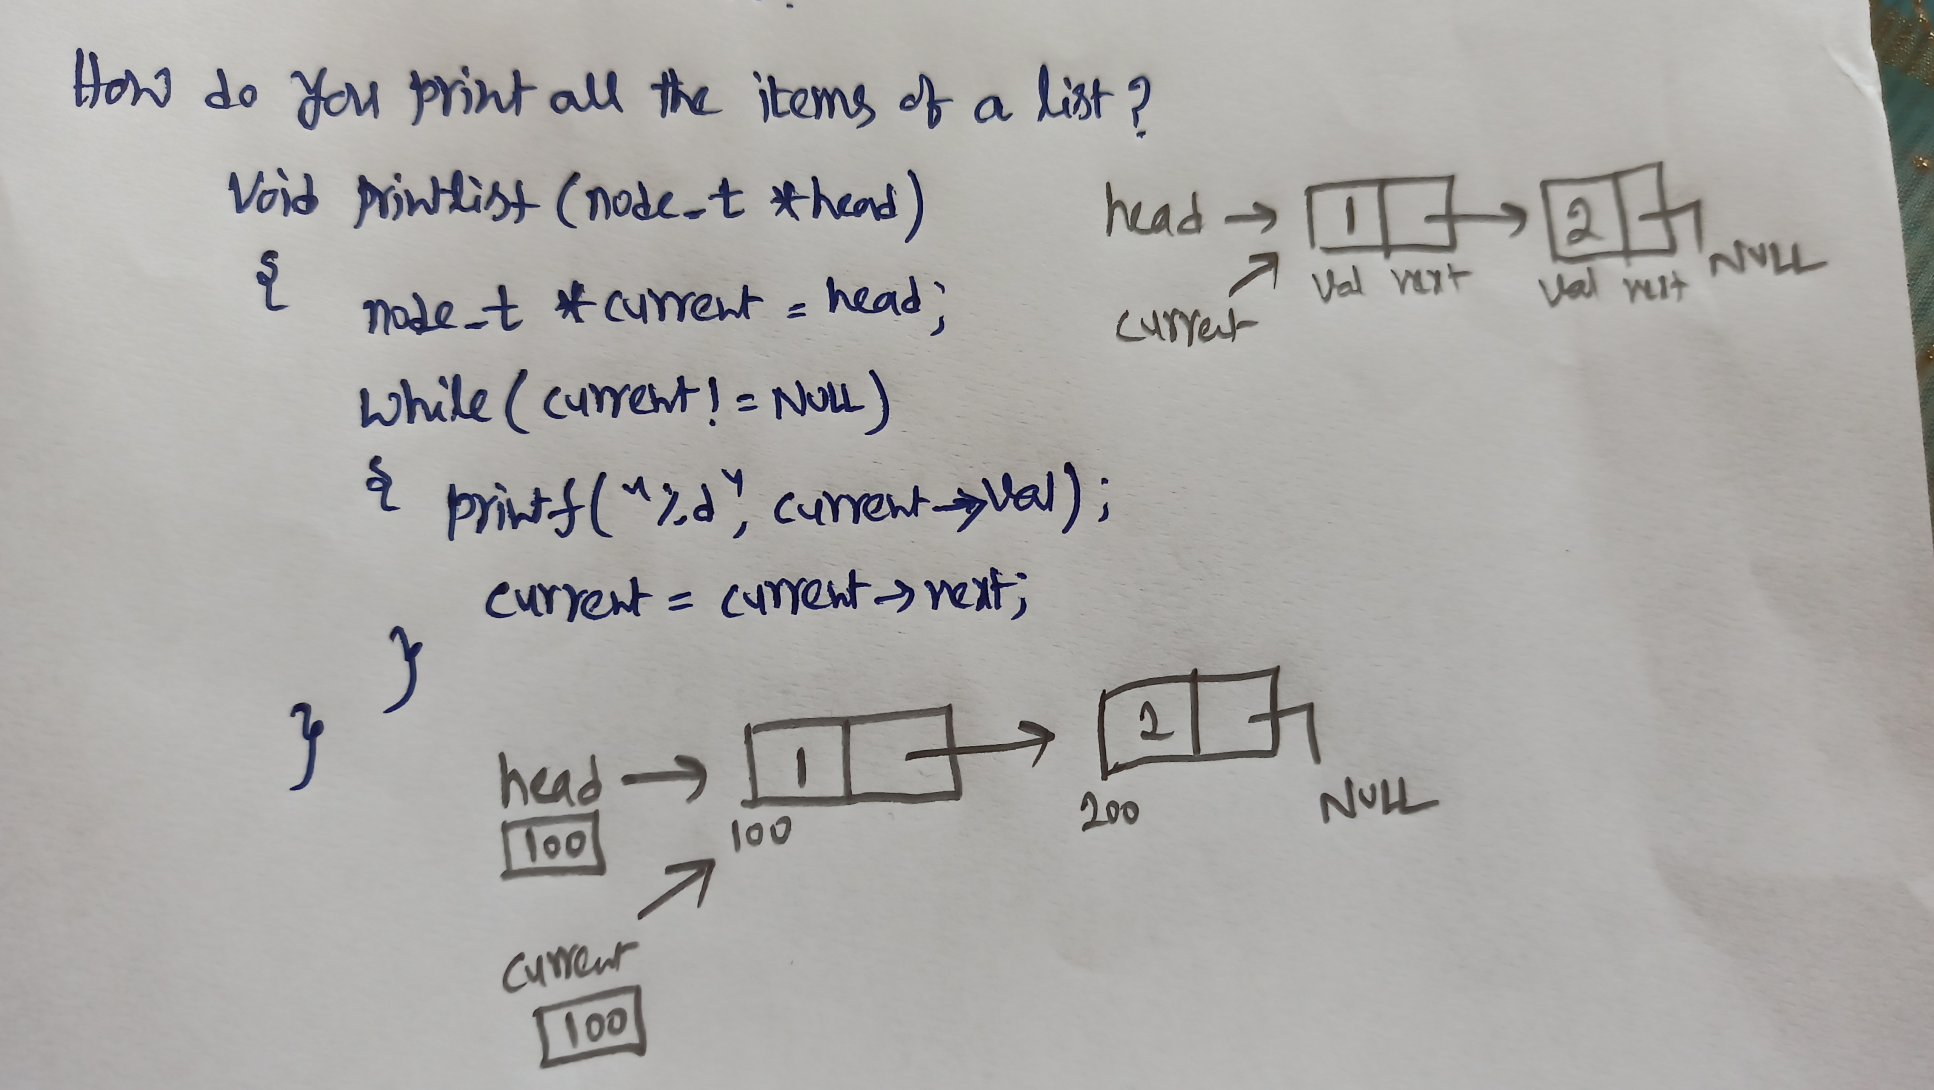 How do you print all the items of a list?
Void printlist (node_t *head)
{
node_t *current = head;
while (current != NULL)
{ printf("%d", current->val);
current = current->next;
}
}
head → 1 → 2
val next val next NULL
current
head → 1 → 2
100 100 200 NULL
current
100